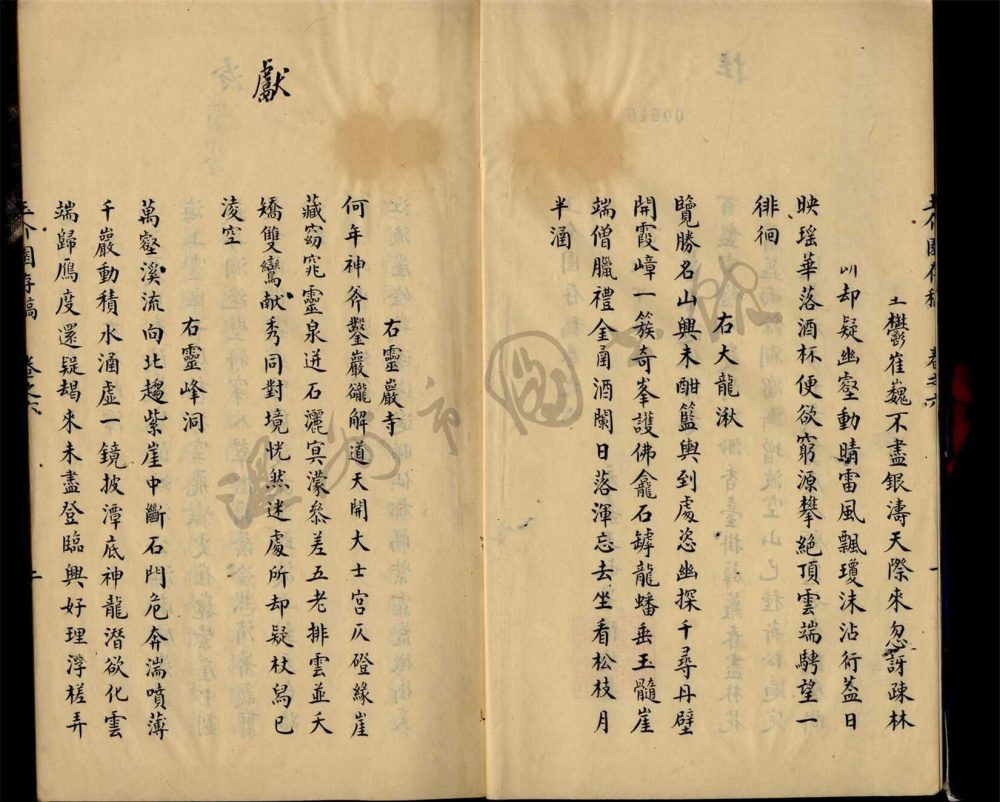 介園存稿 卷之六 一
鬱崔巍不盡銀濤天際來忽訝疎林
却疑幽壑動晴雷風飄瓊沫沾行蓋日
映瑤華落酒杯便欲窮源攀絕頂雲端騁望一
徘徊
右大龍湫
覽勝名山興未酣籃輿到處恣幽探千尋丹壁
開霞嶂一簇奇峯護佛龕石罅龍蟠垂玉髓崖
端僧臘禮金函酒闌日落渾忘去坐看松枝月
半涵
獻
右靈巖寺
何年神斧鑿巖巃解道天開大士宮仄磴緣崖
藏窈窕靈泉迸石灑冥濛叅差五老排雲並夭
矯雙鸞献秀同對境恍然迷處所却疑杖舄已
淩空
右靈峰洞
萬壑溪流向北趨紫崖中斷石門危奔湍噴薄
千巖動積水涵虛一鏡披潭底神龍潛欲化雲
端歸鴈度還疑朅來未盡登臨興好理浮槎弄
介園存稿 卷之六 二
溫州市圖書館